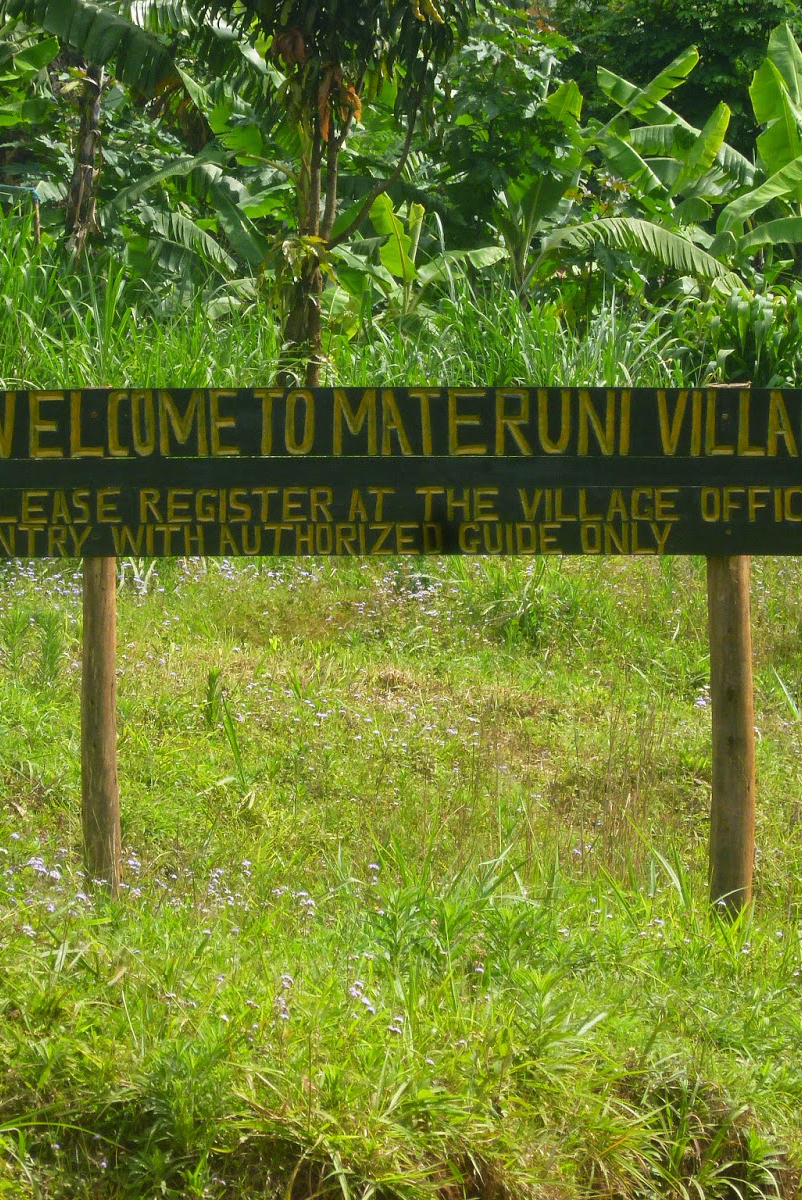 WELCOME TO MATERUNI VILLA
LEASE REGISTER AT THE VILLAGE OFFIC
NTRY WITH AUTHORIZED GUIDE ONLY